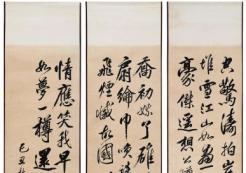 空驚濤拍
堆雪江山如畫
豪傑遙想公
喬初嫁了雄
扇綸巾談
飛煙滅故國
情應笑我早
如夢一樽還
己丑